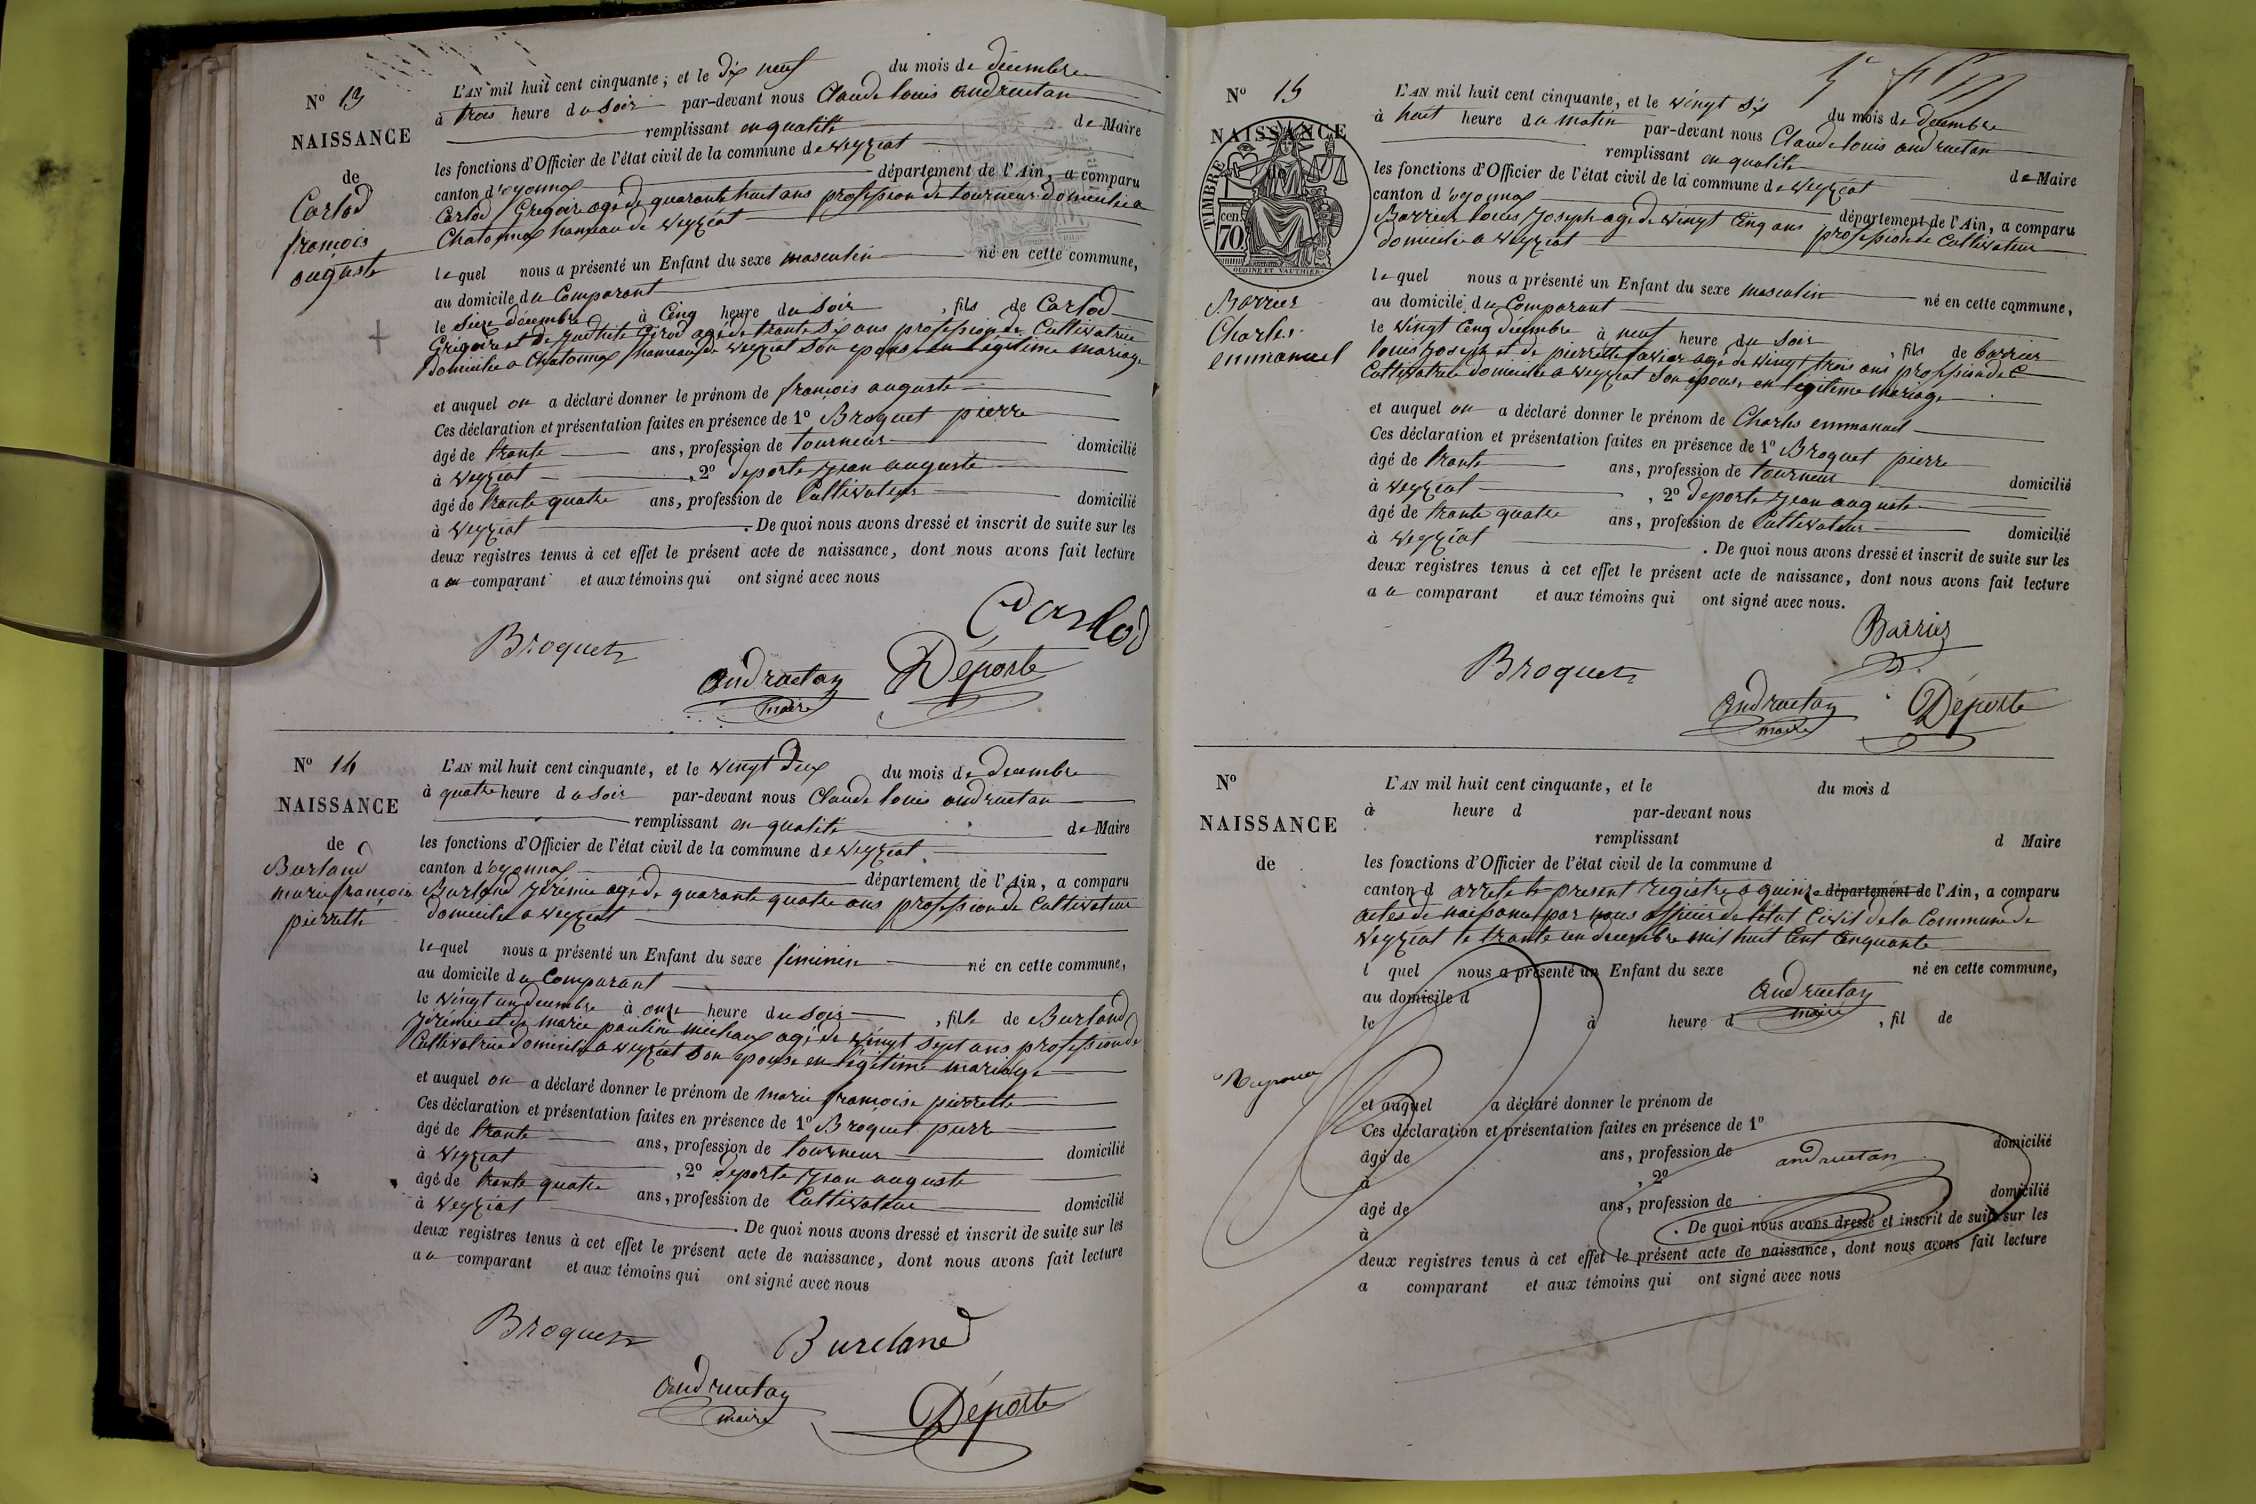 N° 13
NAISSANCE
de
Carlod
françois
auguste
L'AN mil huit cent cinquante, et le dix neuf du mois de décembre
à trois heure du soir par-devant nous Claude louis andruetan
remplissant en qualité de Maire
les fonctions d'Officier de l'état civil de la commune de veyziat
canton d'oyonnax département de l'Ain, a comparu
Carlod Grégoire age de quarante huit ans profession de tourneur domicilié a
Chatonnax hameau de veyziat
lequel nous a présenté un Enfant du sexe masculin né en cette commune,
au domicile du Comparant
le Sieze décembre à Cinq heure du Soir, fils de Carlod
Grégoire et de Judhite Girod agé de trante Six ans profession de Cultivatrice
domicilie a Chatonnax hameau de veyziat Son epouse en légitime mariage
et auquel on a déclaré donner le prénom de françois auguste
Ces déclaration et présentation faites en présence de 1° Broquet pierre
âgé de trante ans, profession de tourneur domicilié
à veyziat, 2° deporte jean auguste
âgé de trante quatre ans, profession de Cultivateur domicilié
à veyziat. De quoi nous avons dressé et inscrit de suite sur les
deux registres tenus à cet effet le présent acte de naissance, dont nous avons fait lecture
a au comparant et aux témoins qui ont signé avec nous
Carlod
Broquet
andruetan
maire
Déporte
N° 14
NAISSANCE
de
Burland
marie françoise
pierrette
L'AN mil huit cent cinquante, et le vingt deux du mois de décembre
à quatre heure du Soir par-devant nous Claude louis andruetan
remplissant en qualité de Maire
les fonctions d'Officier de l'état civil de la commune de veyziat
canton d'oyonnax département de l'Ain, a comparu
Burland Jérémie agé de quarante quatre ans profession de Cultivateur
domicilie a veyziat
lequel nous a présenté un Enfant du sexe féminin né en cette commune,
au domicile du Comparant
le vingt un décembre à onze heure du Soir, fille de Burland
Jérémie et de marie pauline michaux agé de vingt sept ans profession de
Cultivatrice domicilié a veyziat Son epouse en légitime mariage
et auquel on a déclaré donner le prénom de marie françoise pierrette
Ces déclaration et présentation faites en présence de 1° Broquet pierre
âgé de trante ans, profession de tourneur domicilié
à veyziat, 2° deporte jean auguste
âgé de trante quatre ans, profession de Cultivateur domicilié
à veyziat. De quoi nous avons dressé et inscrit de suite sur les
deux registres tenus à cet effet le présent acte de naissance, dont nous avons fait lecture
a u comparant et aux témoins qui ont signé avec nous
Broquet
Burland
andruetan
maire
Déporte
N° 15
NAISSANCE
TIMBRE
cen.
70
OUDINE ET VAUTHIER
Barrier
Charles
emmanuel
L'AN mil huit cent cinquante, et le vingt six du mois de décembre
à huit heure du matin par-devant nous Claude louis andruetan
remplissant en qualité de Maire
les fonctions d'Officier de l'état civil de la commune de veyziat
canton d'oyonnax département de l'Ain, a comparu
Barrier louis Joseph agé de vingt Cinq ans profession de Cultivateur
domicilié a veyziat
lequel nous a présenté un Enfant du sexe masculin né en cette commune,
au domicile du Comparant
le vingt Cinq décembre à neuf heure du Soir, fils de barrier
louis Joseph et de pierrette agé de vingt trois ans profession de
Cultivatrice domicilié a veyziat Son epouse en légitime mariage
et auquel on a déclaré donner le prénom de Charles emmanuel
Ces déclaration et présentation faites en présence de 1° Broquet pierre
âgé de trante ans, profession de tourneur domicilié
à veyziat, 2° deporte jean auguste
âgé de trante quatre ans, profession de Cultivateur domicilié
à veyziat. De quoi nous avons dressé et inscrit de suite sur les
deux registres tenus à cet effet le présent acte de naissance, dont nous avons fait lecture
a u comparant et aux témoins qui ont signé avec nous.
Barrier
Broquet
andruetan
maire
Déporte
N°
NAISSANCE
de
L'AN mil huit cent cinquante, et le du mois d
à heure d par-devant nous
remplissant d Maire
les fonctions d'Officier de l'état civil de la commune d
canton d arrete le present registre a quinze département de l'Ain, a comparu
actes de naissance par nous officier de l'état Civil de la Commune de
veyziat le trante un decembre mil huit Cent Cinquante
l quel nous a présenté un Enfant du sexe né en cette commune,
au domicile d
andruetan
maire
le à heure d, fil de
et auquel a déclaré donner le prénom de
Ces déclaration et présentation faites en présence de 1°
âgé de ans, profession de domicilié
andruetan
à, 2°
âgé de ans, profession de domicilié
à. De quoi nous avons dressé et inscrit de suite sur les
deux registres tenus à cet effet le présent acte de naissance, dont nous avons fait lecture
a comparant et aux témoins qui ont signé avec nous